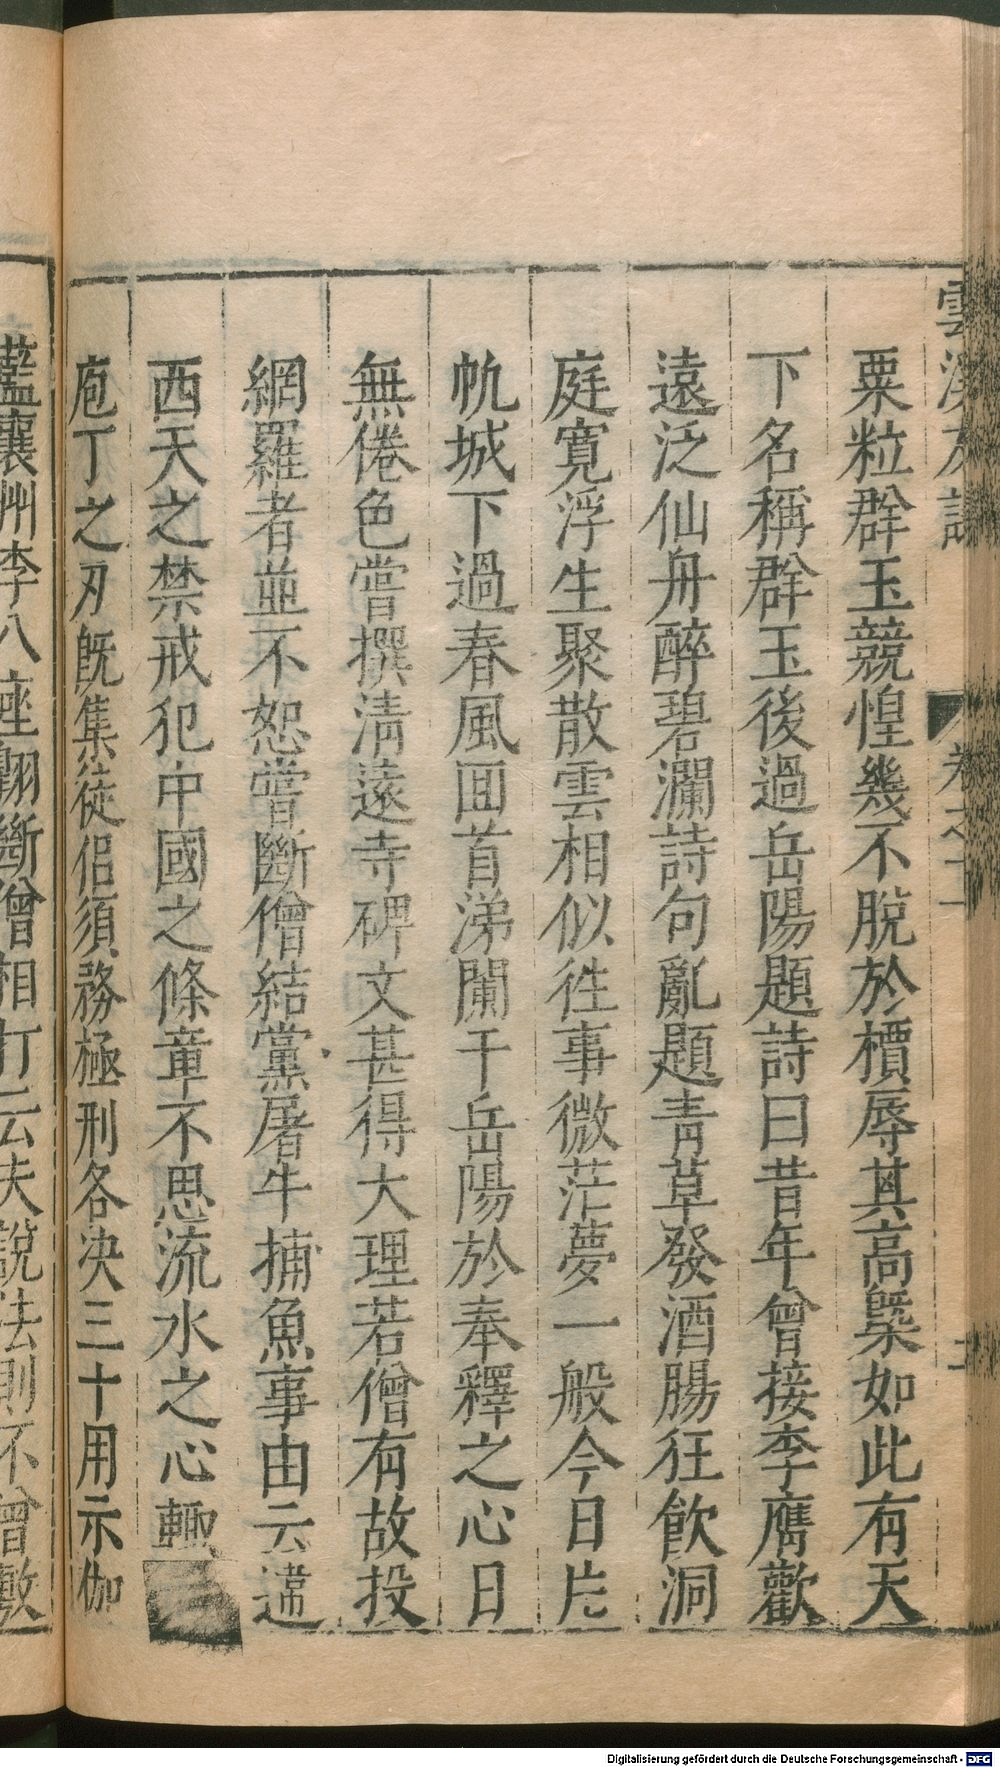 粟粒群玉競惶幾不脫於檟辱其高槩如此有天
下名稱群玉後過岳陽題詩曰昔年曾接李膺歡
遠泛仙舟醉碧瀾詩句亂題靑草發酒腸狂飮洞
庭寬浮生聚散雲相似徃事微茫夢一般今日片
帆城下過春風囬首涕闌干岳陽於奉釋之心日
無倦色嘗撰淸遠寺碑文甚得大理若僧有故投
網羅者並不恕嘗斷僧結黨屠牛捕魚事由云違
西天之禁戒犯中國之條章不思流水之心輙
庖丁之刃旣集徒侶須務極刑各決三十用示伽
藍襄州李八座翺斷僧相打云夫說法則不曾敷
Digitalisierung gefördert durch die Deutsche Forschungsgemeinschaft - DFG